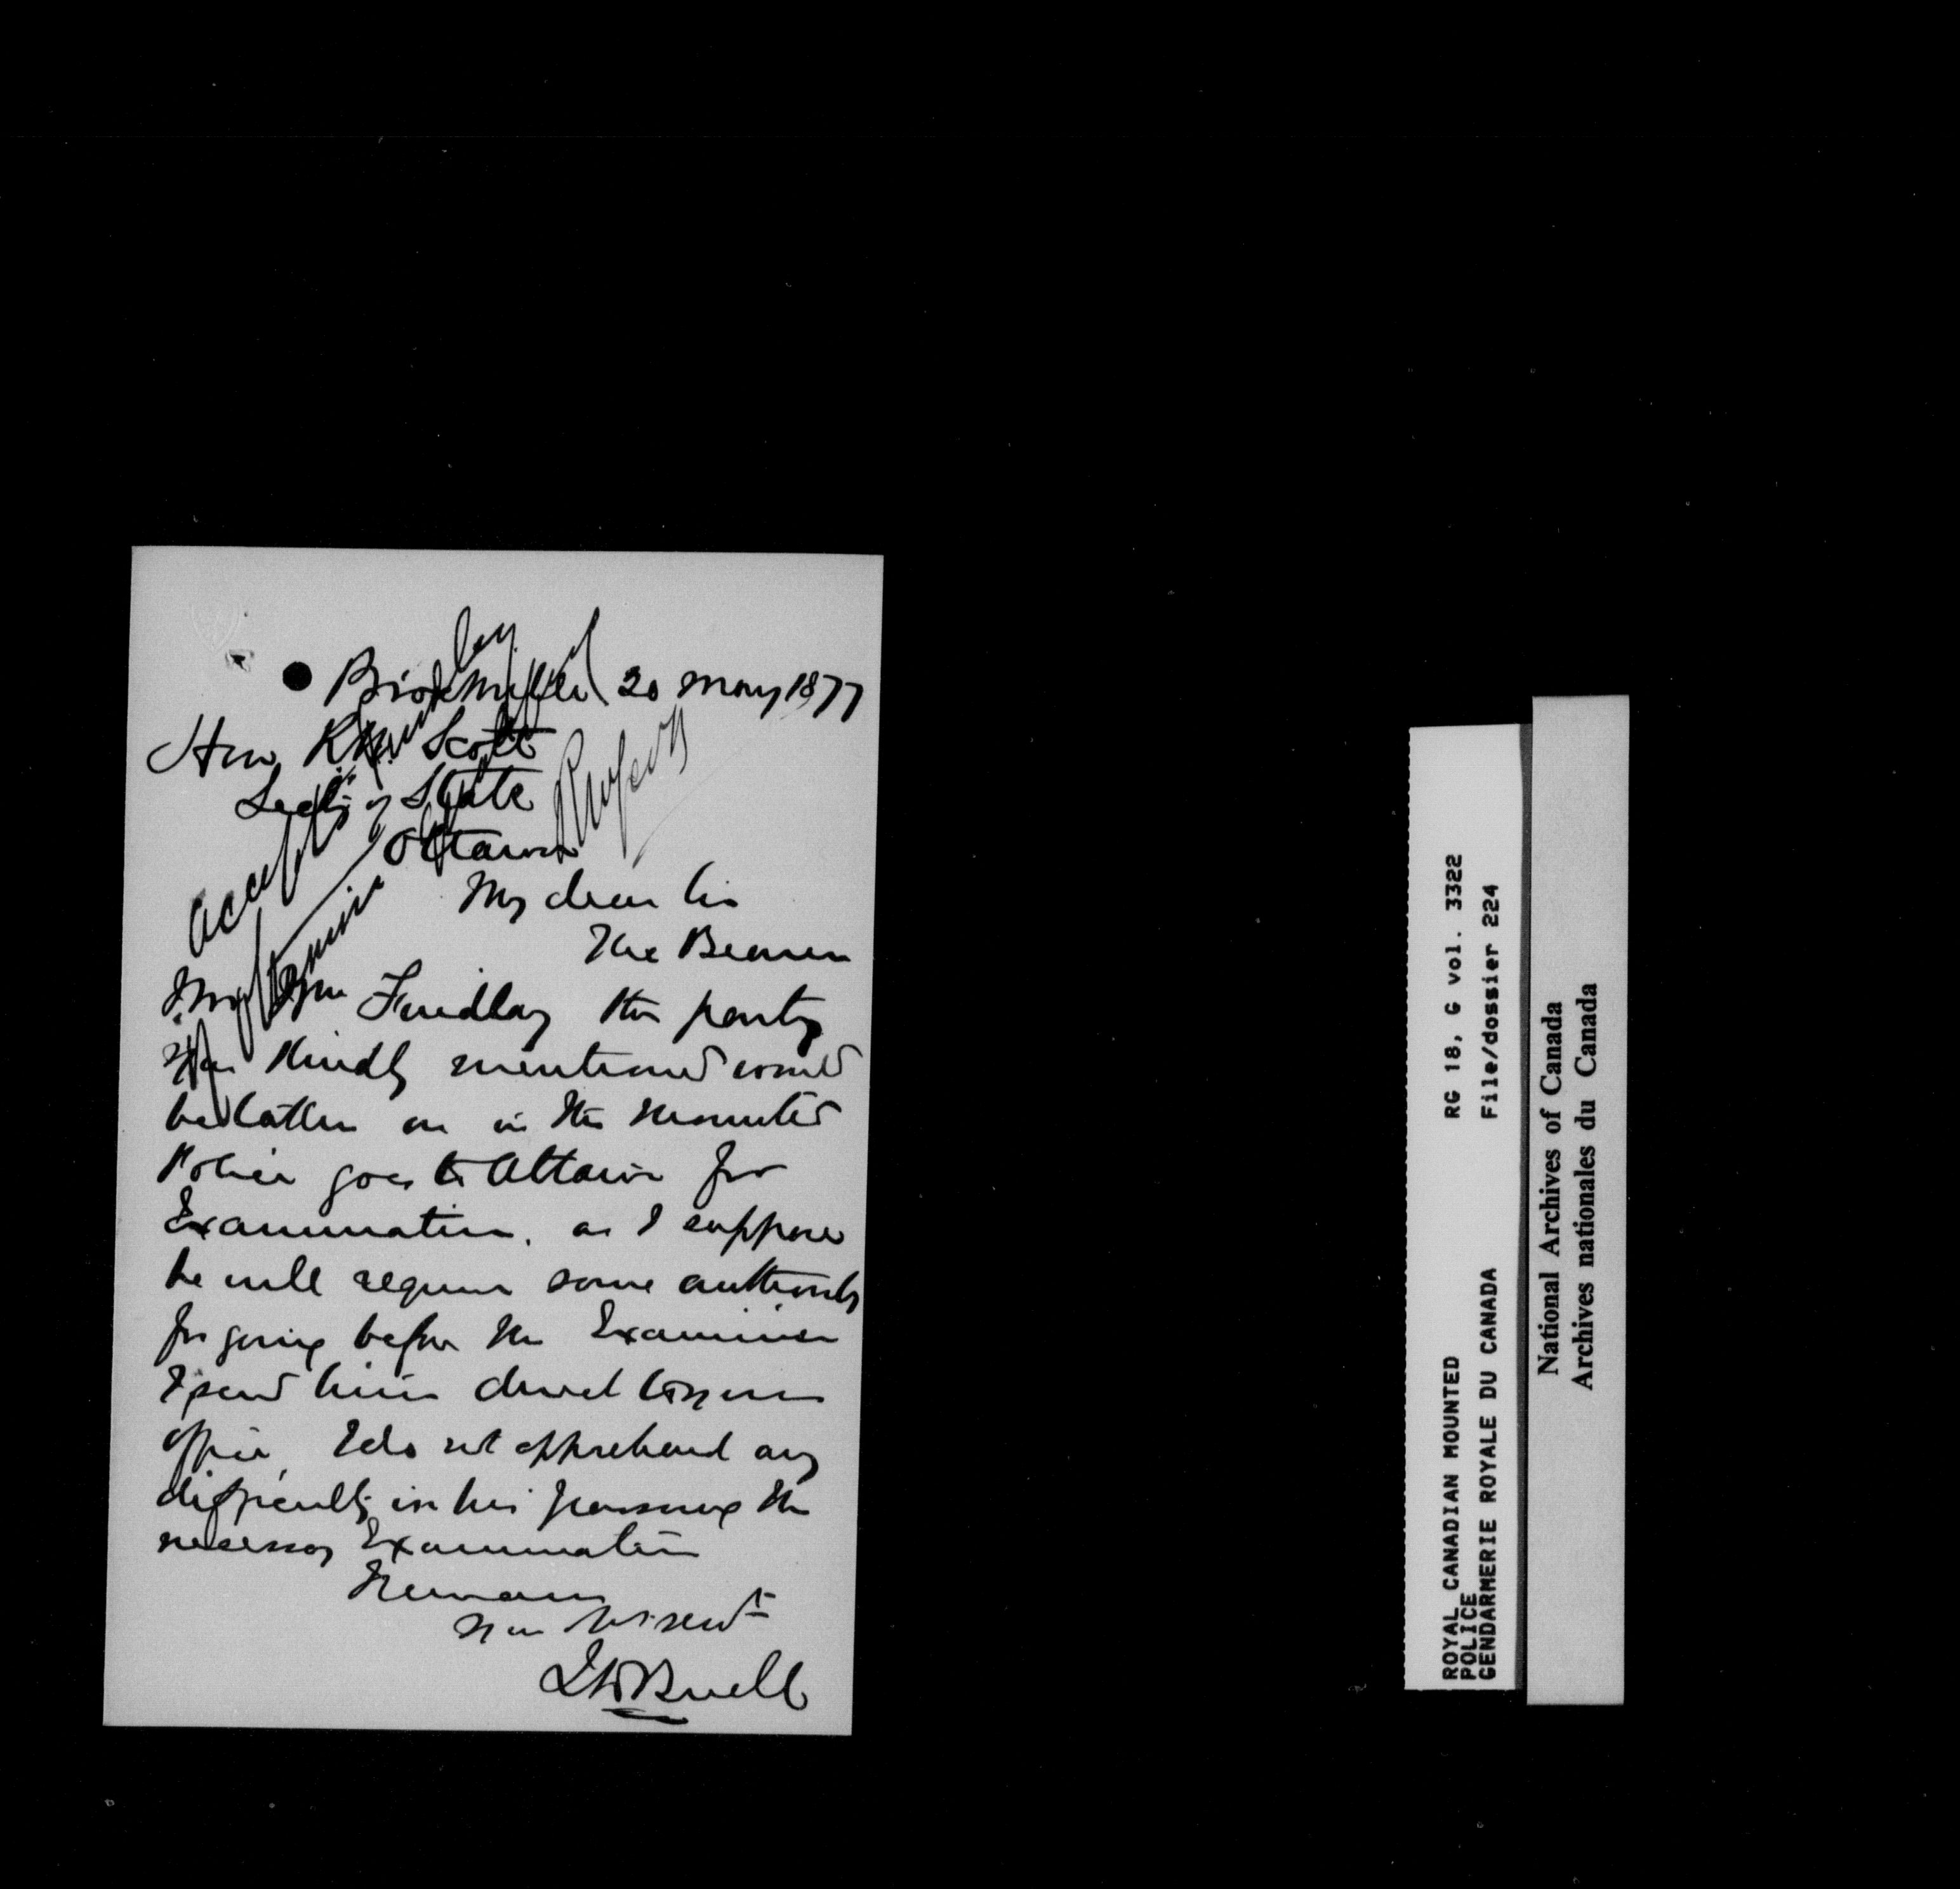 Brockville 20 May 1877
Hon R W Scott
Secty of State
Ottawa
My dear Sir
The Bearer
Findlay the party
you kindly mentioned would
be taken on in the Mounted
Police goes to Ottawa for
Examination. as I suppose
he will require some authority
for going before the Examiner
I send him direct to your
office, I do not apprehend any
difficulty in his passing the
necessary Examination
I remain
Your obt servt
J D Buell
accepted
ROYAL CANADIAN MOUNTED
POLICE
GENDARMERIE ROYALE DU CANADA
RG 18, G vol. 3322
File/dossier 224
National Archives of Canada
Archives nationales du Canada